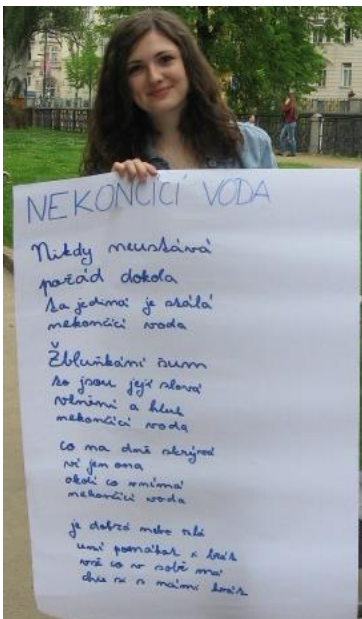 NEKONČÍCÍ VODA
Nikdy neustává
pořád dokola
ta jediná je stálá
nekončící voda
Žbluňkání šum
to jsou její slova
vlnění a hluk
nekončící voda
co na dně skrývá
ví jen ona
okolí co vnímá
nekončící voda
je dobrá nebo zlá
umí pomáhat i brát
vše co v sobě má
chce si s námi hrát